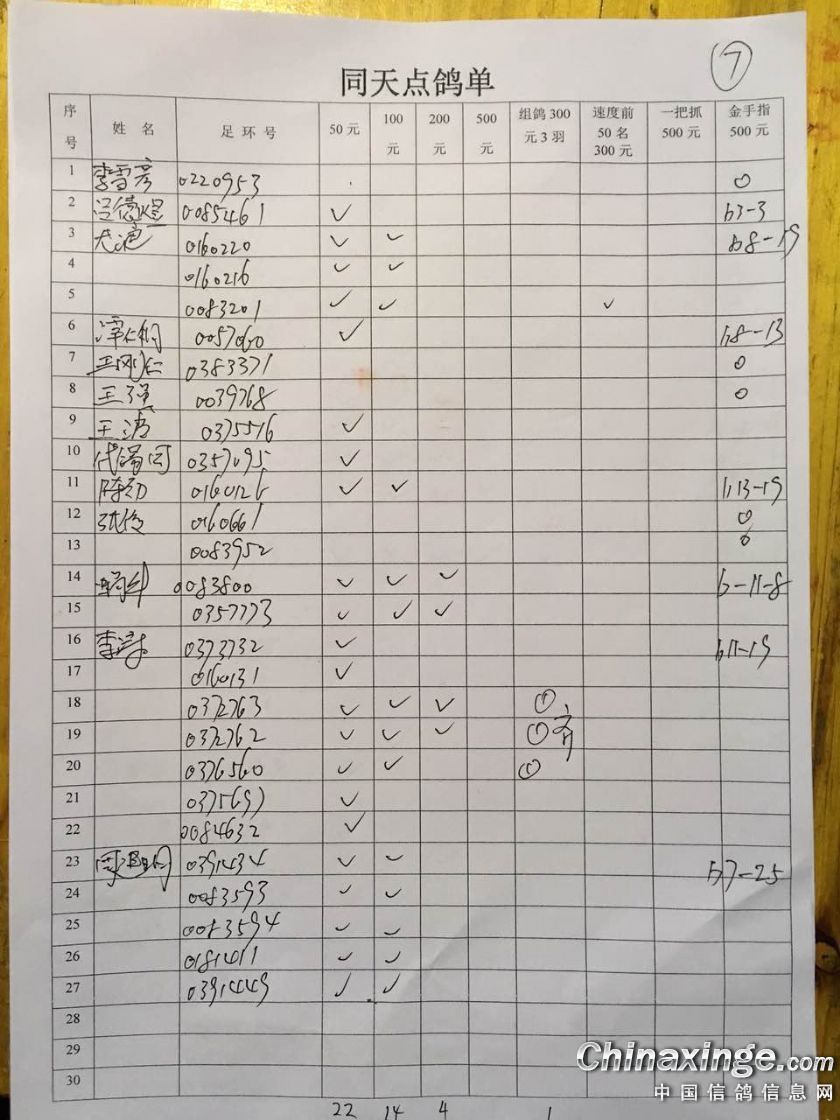 ⑦
同天点鸽单
序号 姓 名 足 环 号 50元 100元 200元 500元 组鸽300元3羽 速度前50名300元 一把抓500元 金手指500元
1 李雪彦 0220953 0
2 0085461 ✓ 63-3
3 0160220 ✓ ✓ 68-19
4 0160216 ✓ ✓
5 0083201 ✓ ✓ ✓
6 0057060 ✓ 68-13
7 王刚仁 0383371 0
8 王强 0039768 0
9 王涛 0375516 ✓
10 0357095 ✓
11 陈劲 0160126 ✓ ✓ 13-19
12 张俊 0160661 0
13 0083952 0
14 0083800 ✓ ✓ ✓ 6-11-8
15 0357773 ✓ ✓ ✓
16 0373732 ✓ 611-19
17 0160131 ✓
18 0372763 ✓ ✓ ✓ ①
19 0372762 ✓ ✓ ✓ ① 齐
20 0376560 ✓ ✓ ①
21 0375697 ✓
22 0084632 ✓
23 0391434 ✓ ✓ 67-25
24 0083593 ✓ ✓
25 0083594 ✓ ✓
26 0181011 ✓ ✓
27 0391449 ✓ ✓
28
29
30
22 14 4 1
Chinaxinge.com
中国信鸽信息网